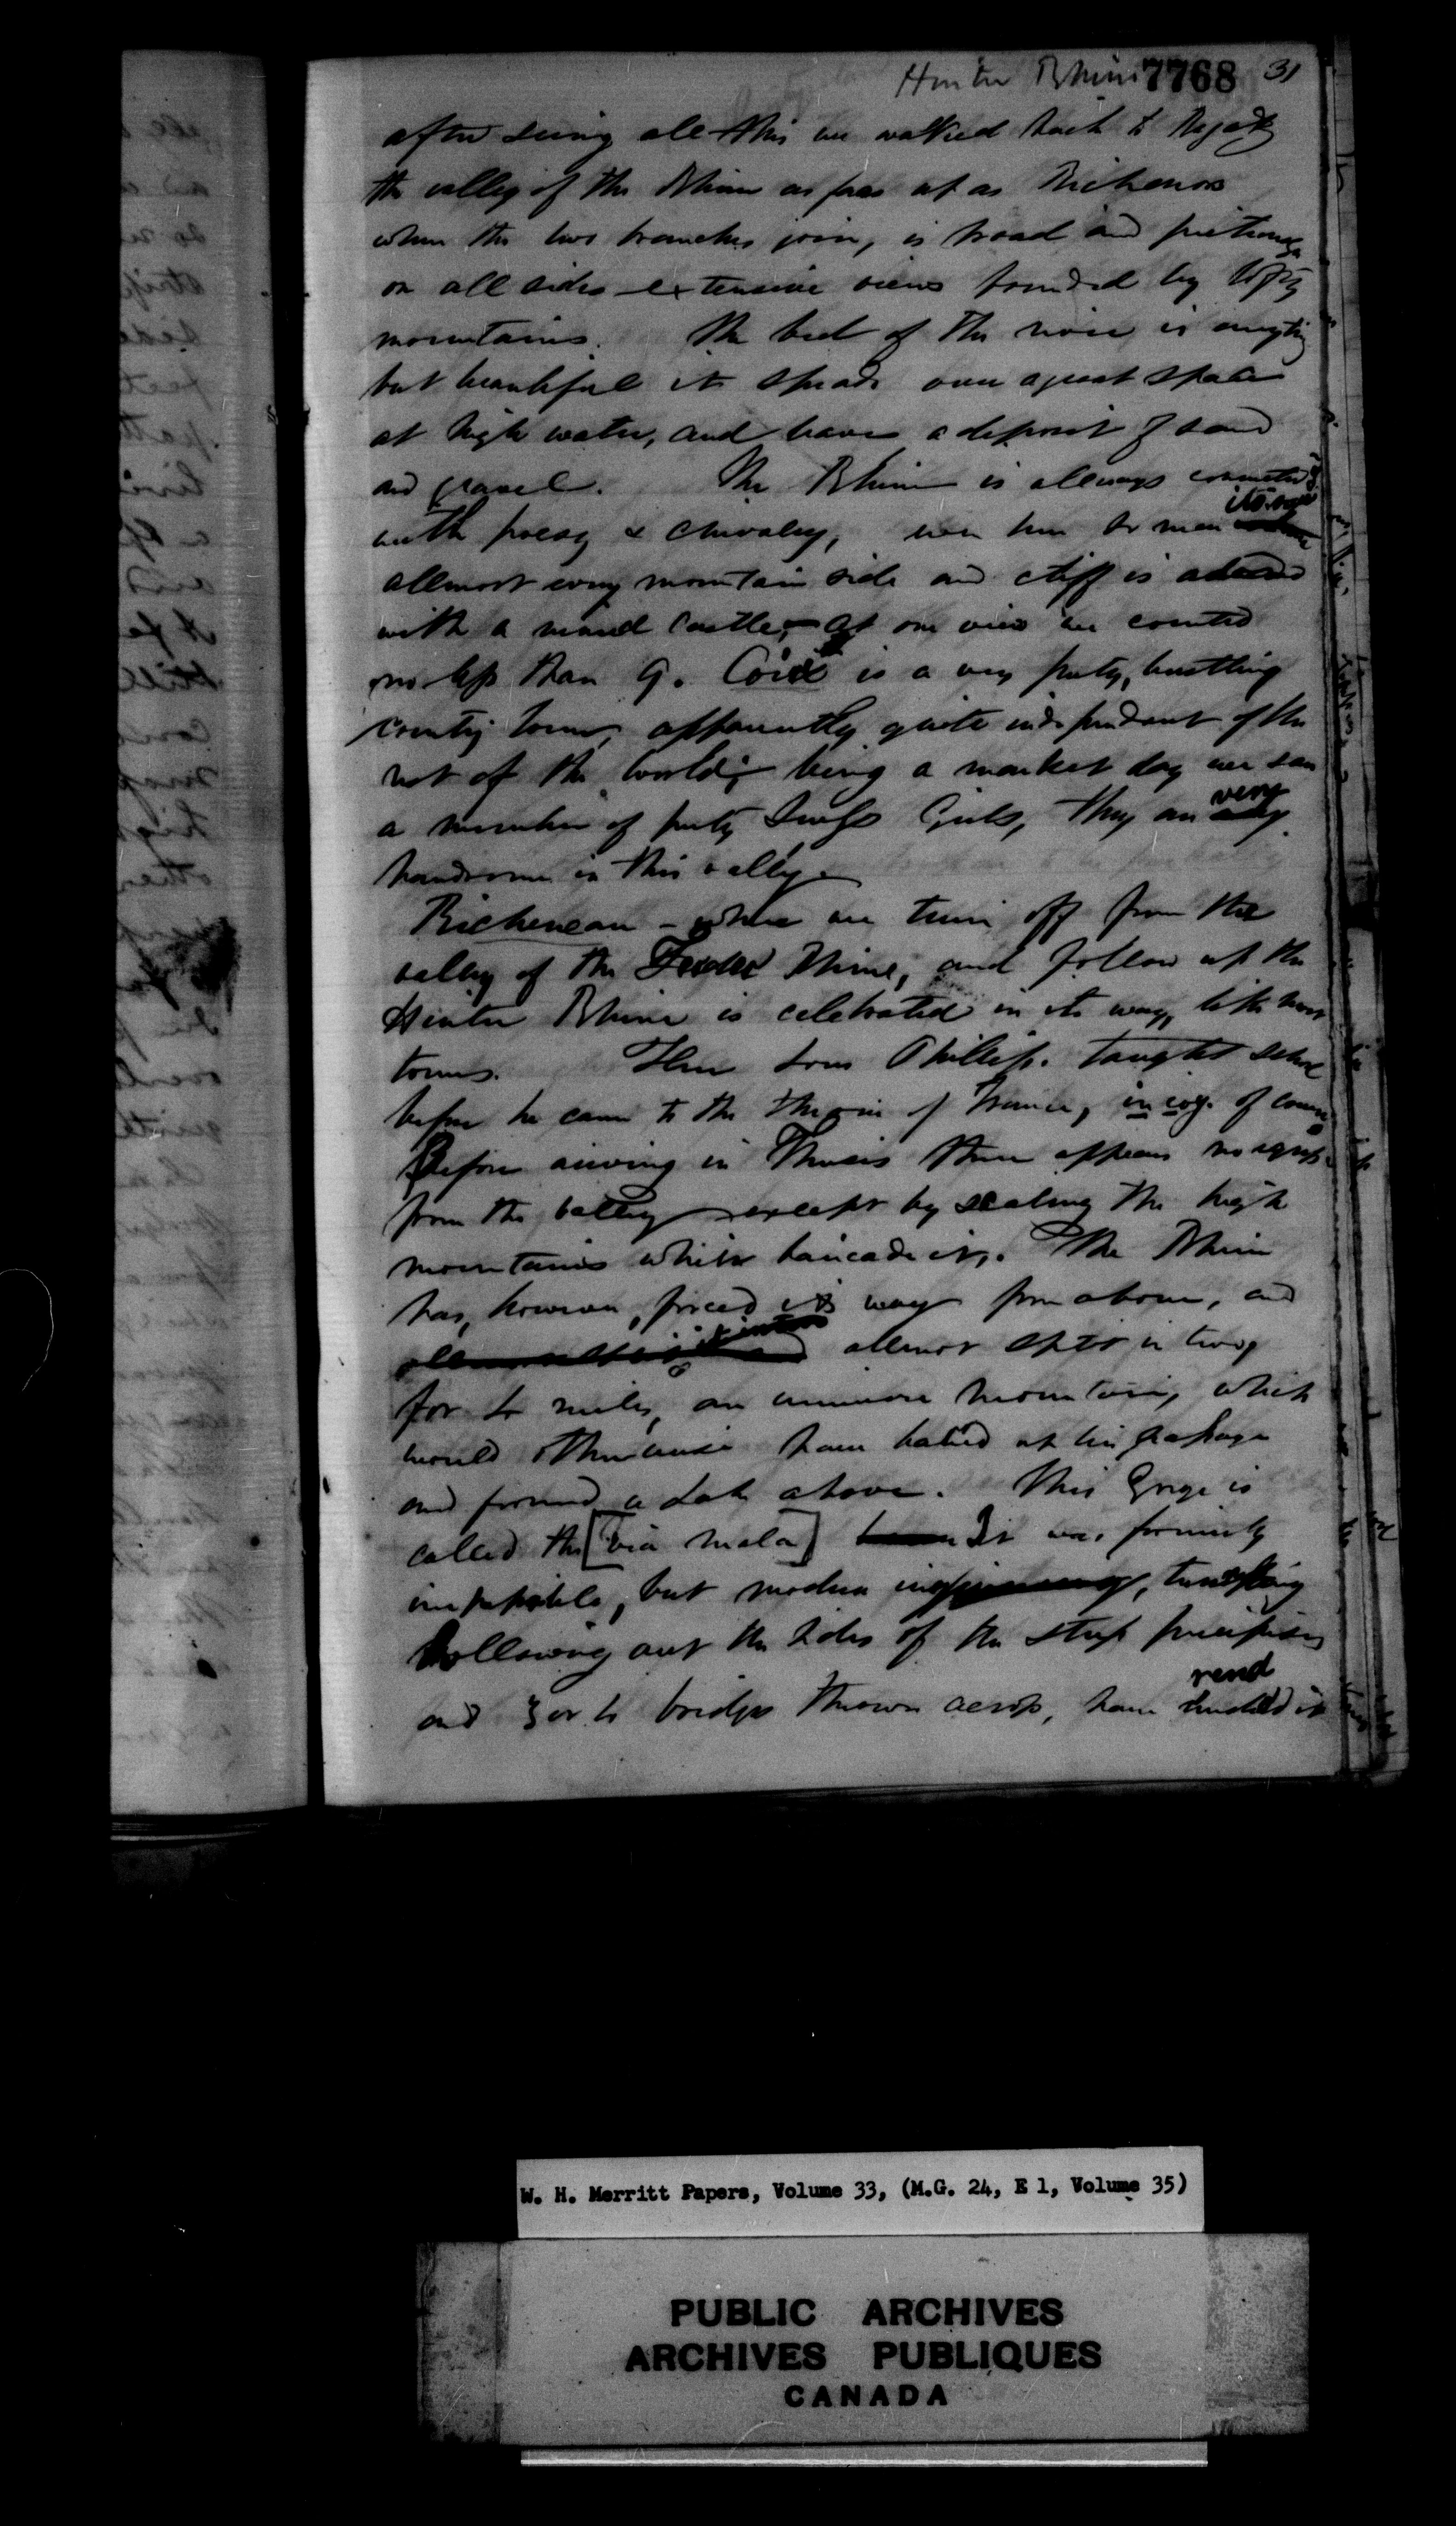 Hinter Rhine 7768 31
after seing all this we walked back to Ragatz
the valley of the Rhine as far up as Richenau
when the two branches join, is broad and
on all sides extensive views bounded by lofty
mountains. The bed of the river is anything
but beautiful it spreads over a great space
at high water, and leaves a deposit of sand
and gravel. The Rhine is allways connected
with poesy & chivalry, even here
allmost every mountain side and cliff is
with a ruined castle, at one view we counted
no less than 9. Coire is a very pretty, bustling
country town, apparently quite independant of the
rest of the world; being a market day we saw
a number of pretty Swiss Girls, they are very
handsome in this valley
Richeneau - where we turn off from the
valley of the Rhine, and follow up the
Hinter Rhine is celebrated in its way, like most
towns. Here Louis Phillip. taught school
before he came to the throne of France, incog. of course
Before arriving in Thusis there appears no egress
from the valley except by scaling the high
mountains which baricade it. The Rhine
has, however, forced its way from above, and
allmost split in two,
for 4 miles, an immense mountain, which
would otherwise have barred up his passage
and formed a Lake above. This Gorge is
called the [via mala] It was formerly
impassible, but modern
hollowing out the sides of the steep precipices
and 3 or 4 bridges thrown across, have rend it
W. H. Merritt Papers, Volume 33, (M.G. 24, E 1, Volume 35)
PUBLIC ARCHIVES
ARCHIVES PUBLIQUES
CANADA